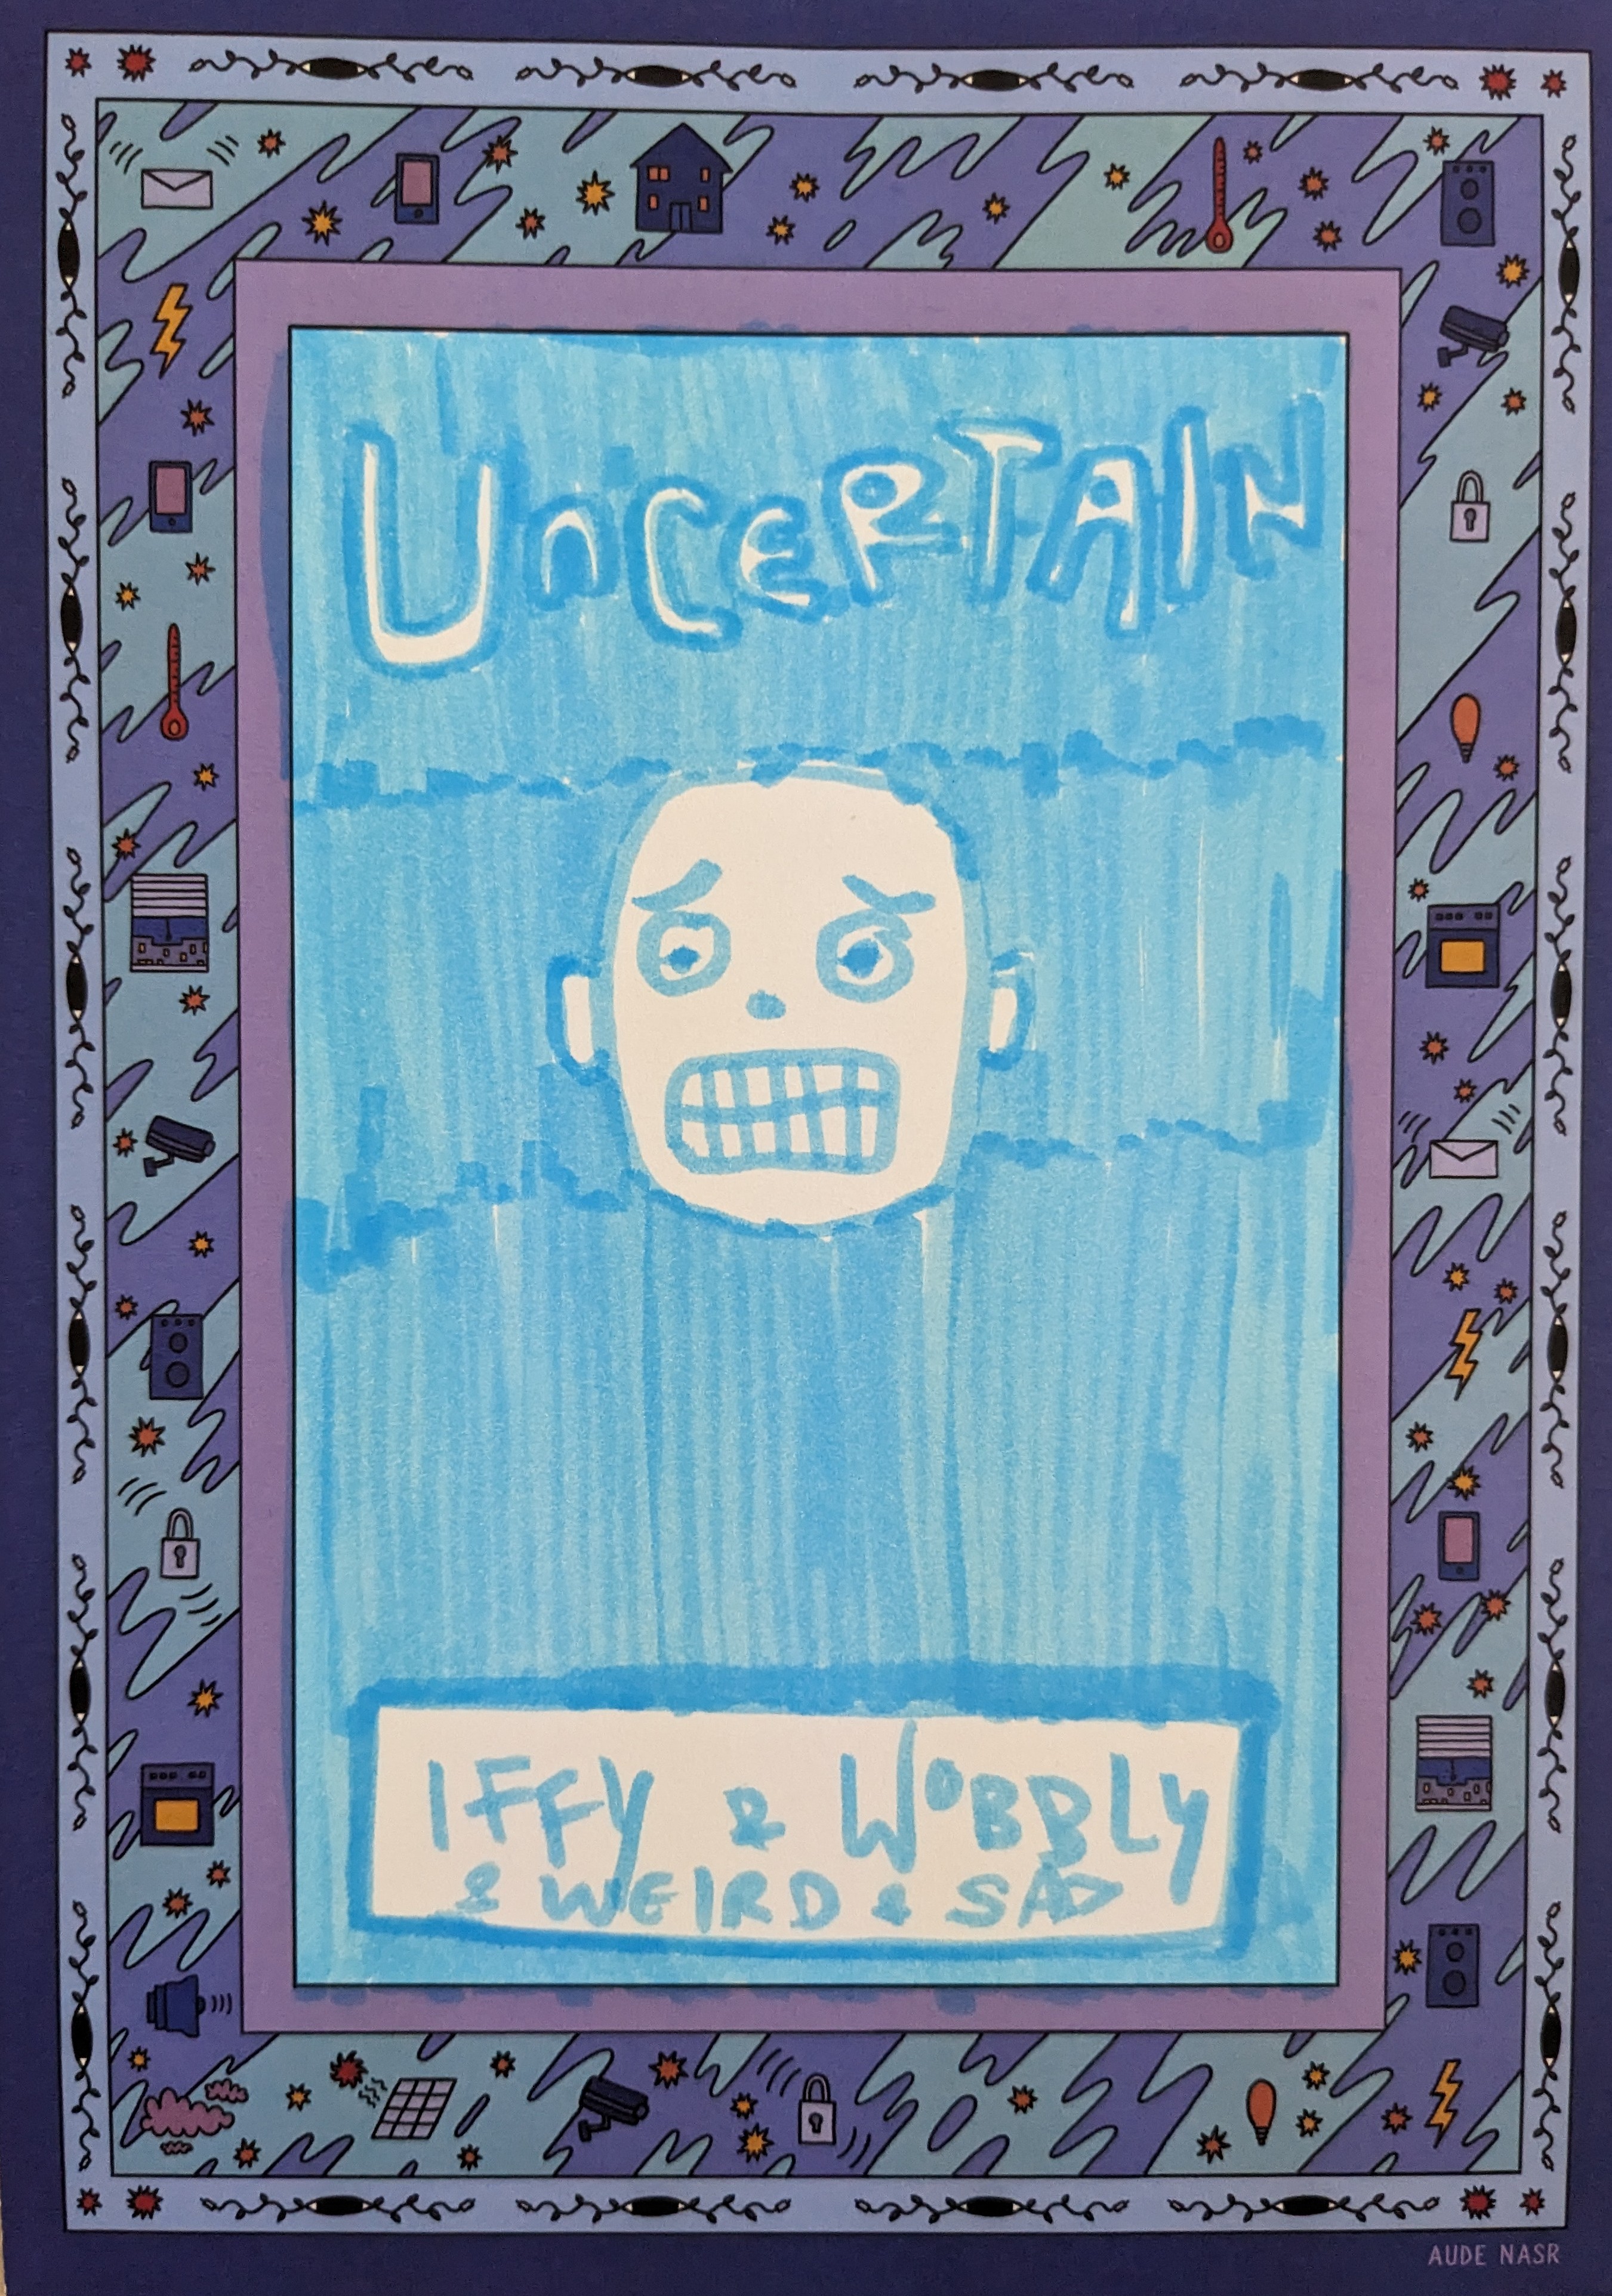 UnCERTAIN
IFFY & WOBBLY
& WEIRD & SAD
AUDE NASR